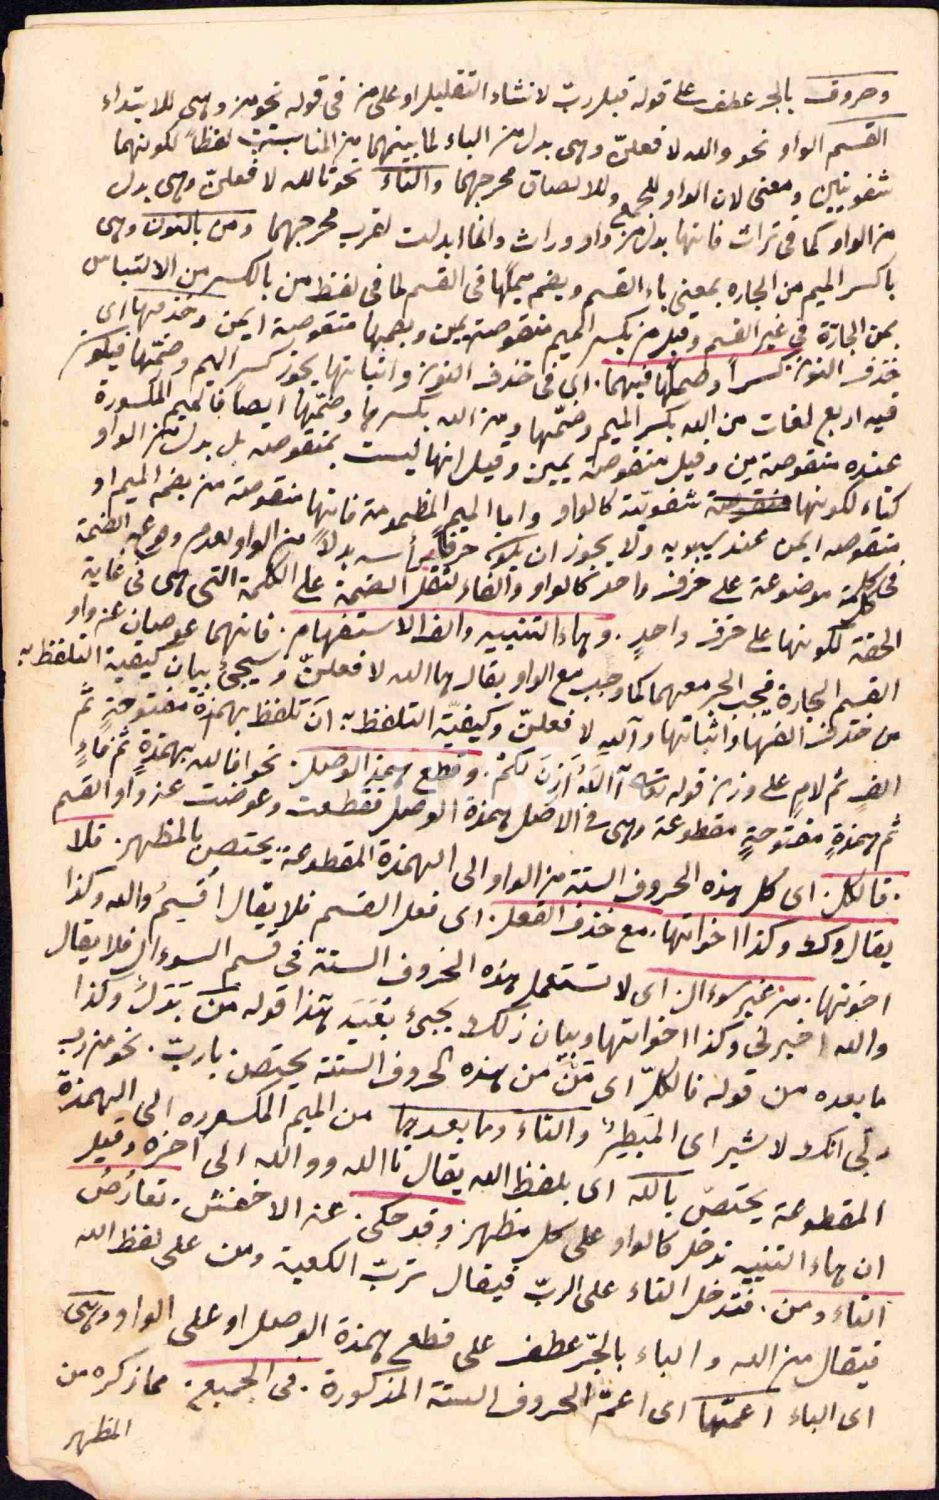 وحروف بالجر عطف على قوله قبل رب لانشاء التقليل او على من فى قوله نحو من وهى للابتداء
القسم الواو نحو والله لافعلنّ وهى بدل من الباء لما بينهما من المناسبتين لفظاً لكونهما
شفويتين ومعنى لان الواو للجمع وللالصاق مخرجهما والتاء نحو تالله لافعلن وهى بدل
من الواو كما فى تراث فانها بدل من واو وراث وانما ابدلت لقرب مخرجهما ومن بالنون وهى
باكسر الميم من الجاره بمعنى باء القسم ويضم ميمها فى القسم لما فى لفظ من بالكسر من الالتباس
بمن الجارّة فى غير القسم وقيل من بكسر الميم منقوصة يمين وبضمها منقوصة ايمن وحذفها اى
حذف النون كسراً وضمها فيهما. اى فى حذف النون واثباتها يجوز كسر الميم وضمّها فيكون
فيه اربع لغات من الله بكسر الميم وضمّها و م الله بكسرها وضمّها ايضاً فالميم المكسورة
عنده منقوصة من وقيل منقوصة يمين وقيل انها ليست بمنقوصه بل بدل من الواو
كتاء لكونها شفويّة كالواو واما الميم المظمومة فانها منقوصة من بضم الميم او
منقوصه ايمن عند سيبويه ولا يجوز ان يكون حرفا برأسه بدلاً من الواو لعدم وجود الضمة
فى كلمة موضوعة على حرف واحد كالواو والفاء لثقل الضمة على الكلمة التى هى فى غاية
الخفة لكونها على حرف واحدٍ. وهاء التنبيه والف الاستفهام. فانهما عوضان عن واو
القسم الجارة فيجب الجر معهما كما وجب مع الواو يقال ها الله لافعلنّ وسيجئ بيان كيفية التلفظ به
من حذف الفها واثباتها وآلله لافعلنّ وكيفيّة التلفظ به ان تلفظ بهمزة مفتوحةٍ ثم
الفٍ ثم لامٍ على وزن قوله تع آللّٰهُ اَذِنَ لَكُمْ. وقطع همزة الوصل. نحو افالله بهمزةٍ ثم فاءٍ
ثم همزةٍ مفتوحةٍ مقطوعة وهى فى الاصل همزة الوصل فقطعت وعوضت عن واو القسم
. فالكل. اى كل هذه الحروف الستة من الواو الى الهمزة المقطوعة. يختص بالمظهر. فلا
يقال وك وكذا اخواتها. مع حذف الفعل. اى فعل القسم فلا يقال اُقسِمُ والله وكذا
اخوتها. من غير سؤال. اى لا تستعمل هذه الحروف الستة فى قسم السوءال فلا يقال
والله اخبرنى وكذا اخواتها وبيان ذلك يجئ بُعَيد هذا قوله منَ بَدَلٌ وكذا
ما بعده من قوله فالكلّ اى من هذه الحروف الستة يختص. بارب. نحو من رب
ربّى انك لا شير اى المَبطِرُ والتاء وما بعدها من الميم المكسوره الى الهمزة
المقطوعة يختصّ بالله اى بلفظ الله يقال تا الله و والله الى آخره وقيل
ان هاء التنبيه تدخل كالواو على كل مظهر. وقد حكى. عن الاخفش. تعارُضُ
التاء ومن. فتدخل التاء على الربّ فيقال تربّ الكعبة ومن على لفظ الله
فيقال من الله والباء بالجرّ عطف على قطع همزة الوصل او على الواو وهى
اى الباء اعمّها اى اعمّ الحروف الستة المذكورة. فى الجميع. مما ذكره من
المظهر